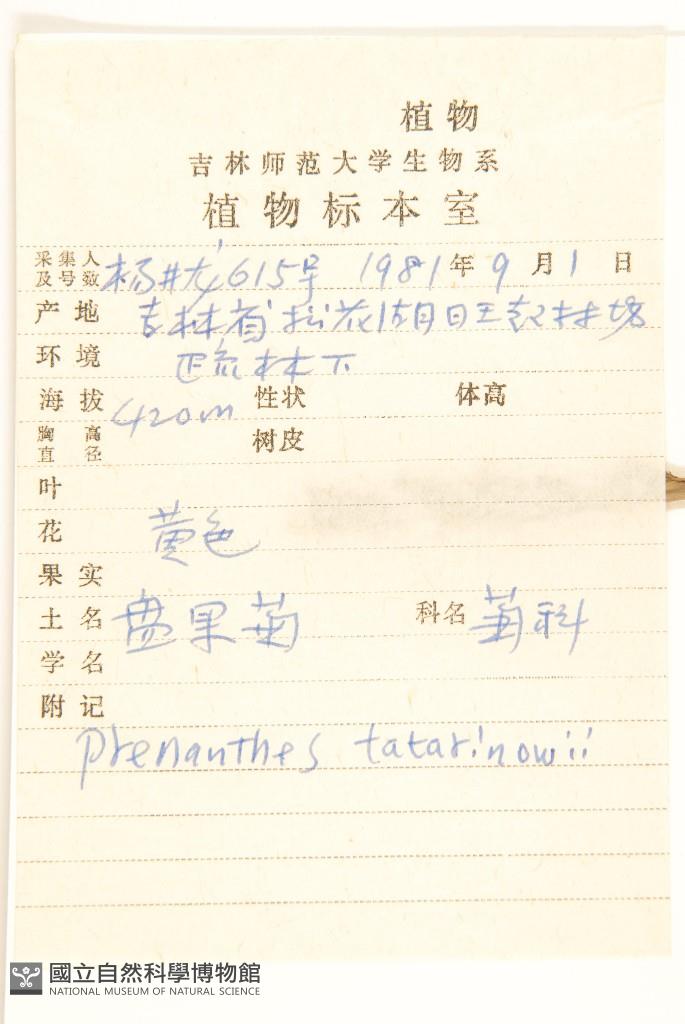 植物
吉林师范大学生物系
植物标本室
采集人及号数 杨井龙615号 1981年9月1日
产地 吉林省松花湖日王起林场
环境 林下
海拔 420m 性状 体高
胸高直径 树皮
叶
花 黄色
果实
土名 盘果菊 科名 菊科
学名
附记
Prenanthes tatarinowii
國立自然科學博物館
NATIONAL MUSEUM OF NATURAL SCIENCE